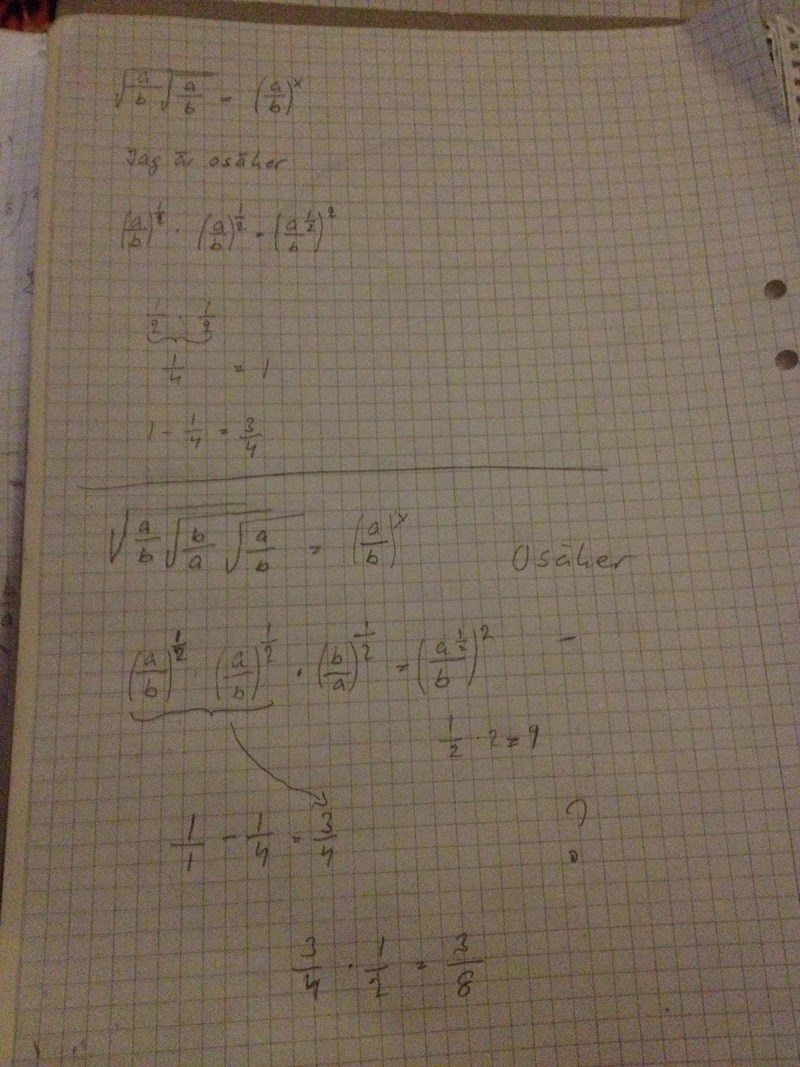 √(a/b √(a/b)) = (a/b)^x
Jag är osäker
(a/b)^(1/2) · (a/b)^(1/2) = (a^(1/2)/b)^2
1/2 · 1/2
1/4 = 1
1 - 1/4 = 3/4
√(a/b √(b/a √(a/b))) = (a/b)^x
Osäker
(a/b)^(1/2) · (a/b)^(1/2) · (b/a)^(1/2) = (a^(1/2)/b)^2 -
1/2 · 2 = 9
1/1 - 1/4 = 3/4 ?
3/4 · 1/2 = 3/8